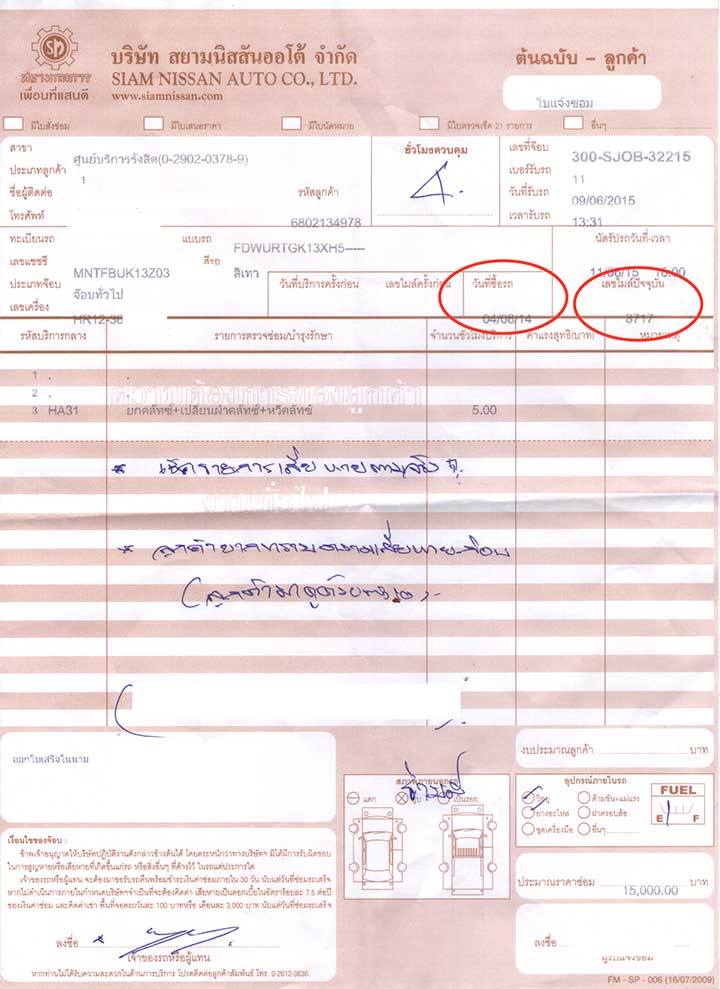 สยามกลการ
เพื่อนที่แสนดี
บริษัท สยามนิสสันออโต้ จำกัด
SIAM NISSAN AUTO CO., LTD.
www.siamnissan.com
ต้นฉบับ - ลูกค้า
ใบแจ้งซ่อม
มีใบสั่งซ่อม มีใบเสนอราคา มีใบนัดหมาย มีใบตรวจเช็ค 21 รายการ อื่นๆ
สาขา ศูนย์บริการรังสิต(0-2902-0378-9)
ประเภทลูกค้า 1
ชื่อผู้ติดต่อ
รหัสลูกค้า
โทรศัพท์ 6802134978
ชั่วโมงควบคุม
4.
เลขที่จ๊อบ 300-SJOB-32215
เบอร์รับรถ 11
วันที่รับรถ 09/06/2015
เวลารับรถ 13:31
ทะเบียนรถ
แบบรถ FDWURTGK13XH5-----
นัดรับรถวันที่-เวลา
11/06/15 16:00
เลขแชชซี MNTFBUK13Z03
สีรถ สีเทา
ประเภทจ๊อบ จ๊อบทั่วไป
เลขเครื่อง HR12-36
วันที่บริการครั้งก่อน เลขไมล์ครั้งก่อน
วันที่ซื้อรถ
04/08/14
เลขไมล์ปัจจุบัน
8717
รหัสบริการกลาง รายการตรวจซ่อม/บำรุงรักษา จำนวนชั่วโมงบริการ ค่าแรงสุทธิ(บาท) หมายเหตุ
1 .
2 .
ความต้องการของลูกค้า
3 HA31 ยกคลัทช์+เปลี่ยนผ้าคลัทช์+หวีคลัทช์ 5.00
งานทั่วไป
ออกใบเสร็จในนาม
งบประมาณลูกค้า บาท
สภาพภายนอกรถ
แตก บุบ เป็นรอย
อุปกรณ์ภายในรถ
วิทยุ ด้ามขัน+แม่แรง
ยางอะไหล่ ฝาครอบล้อ
ชุดเครื่องมือ อื่นๆ
FUEL
E F
เงื่อนไขของจ๊อบ :
ข้าพเจ้าอนุญาตให้บริษัทปฏิบัติงานดังกล่าวข้างต้นได้ โดยตระหนักว่าทางบริษัทฯ มิได้มีการรับผิดชอบ
ในการสูญหายหรือเสียหายที่เกิดขึ้นแก่รถ หรือสิ่งอื่นๆ ที่ค้างไว้ ในรถแต่ประการใด
เจ้าของรถหรือผู้แทน จะต้องมาขอรับรถคืนพร้อมชำระเงินค่าซ่อมภายใน 30 วัน นับแต่วันที่ซ่อมรถเสร็จ
หากไม่ดำเนินการภายในกำหนดบริษัทฯจำเป็นที่จะต้องคิดค่า เสียหายเป็นดอกเบี้ยในอัตราร้อยละ 7.5 ต่อปี
ของเงินค่าซ่อม และคิดค่าเช่า พื้นที่จอดรถวันละ 100 บาทหรือ เดือนละ 3,000 บาท นับแต่วันที่ซ่อมรถเสร็จ
ลงชื่อ
เจ้าของรถหรือผู้แทน
หากท่านไม่ได้รับความสะดวกในด้านการบริการ โปรดติดต่อลูกค้าสัมพันธ์ โทร. 0-2612-3636
ประมาณราคาซ่อม 15,000.00 บาท
ลงชื่อ
ผู้รับแจ้งซ่อม
FM - SP - 006 (16/07/2009)